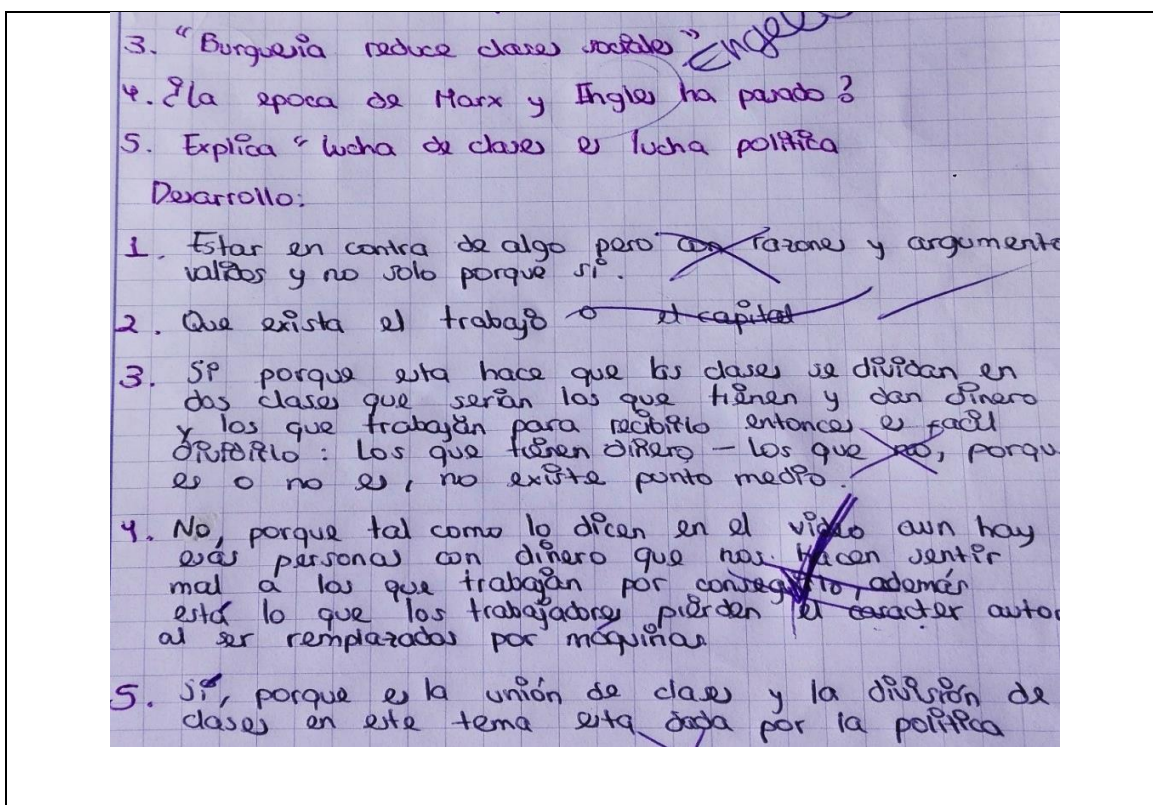 3. "Burguesia reduce clases sociales" Engel
4. ¿la epoca de Marx y Ingles ha pasado?
5. Explica "lucha de clases es lucha política
Desarrollo:
1. Estar en contra de algo pero con razones y argumento
validos y no solo porque si.
2. Que exista el trabajo o el capital
3. Si porque esta hace que las clases se dividan en
dos clases que serian los que tienen y dan dinero
y los que trabajan para recibirlo entonces es facil
dividirlo: los que tienen dinero - los que no, porqu
es o no es, no existe punto medio.
4. No, porque tal como lo dicen en el video aun hay
esas personas con dinero que nos hacen sentir
mal a los que trabajan por conseguirlo, además
está lo que los trabajadores pierden el caracter auto
al ser remplazados por máquinas
5. Si, porque es la unión de clases y la división de
clases en este tema esta dada por la politica